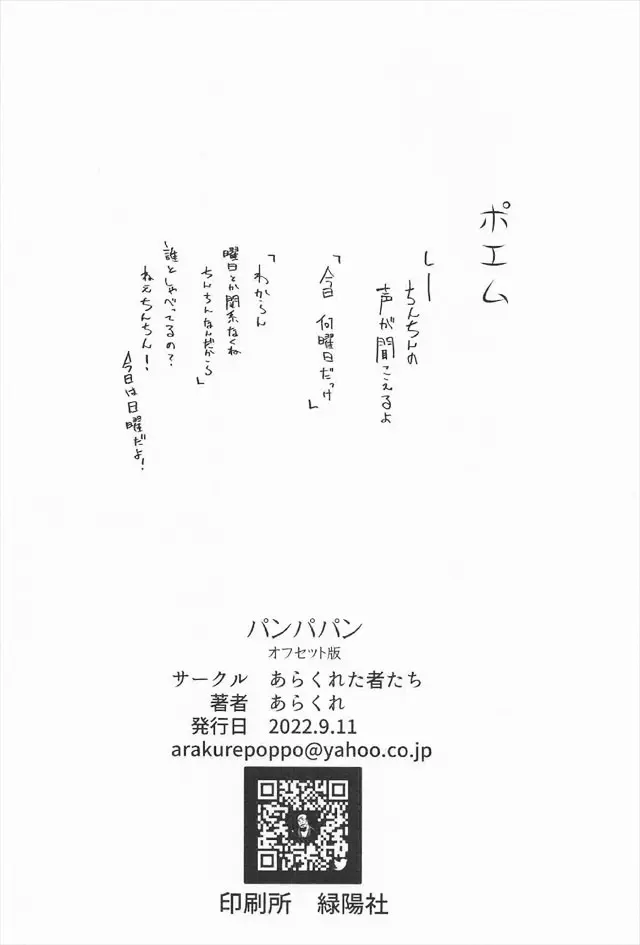 ポエム
しー
ちんちんの
声が聞こえるよ
「今日 何曜日だっけ」
「わからん
曜日とか関係なくね
ちんちんなんだから」
誰としゃべってるの？
ねぇちんちん！
今日は日曜だよ！
パンパパン
オフセット版
サークル　あらくれた者たち
著者　あらくれ
発行日　2022.9.11
arakurepoppo@yahoo.co.jp
印刷所　緑陽社